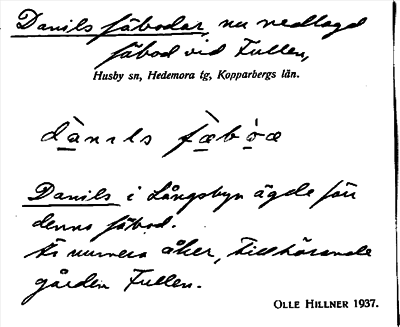 Danils fäbodar, nu nedlagd
fäbod vid Fullen,
Husby sn, Hedemora tg, Kopparbergs län.
dànıls fæbòæ
Danils i Långsbyn ägde förr
denna fäbod.
Är numera åker, tillhörande
gården Fullen.
OLLE HILLNER 1937.